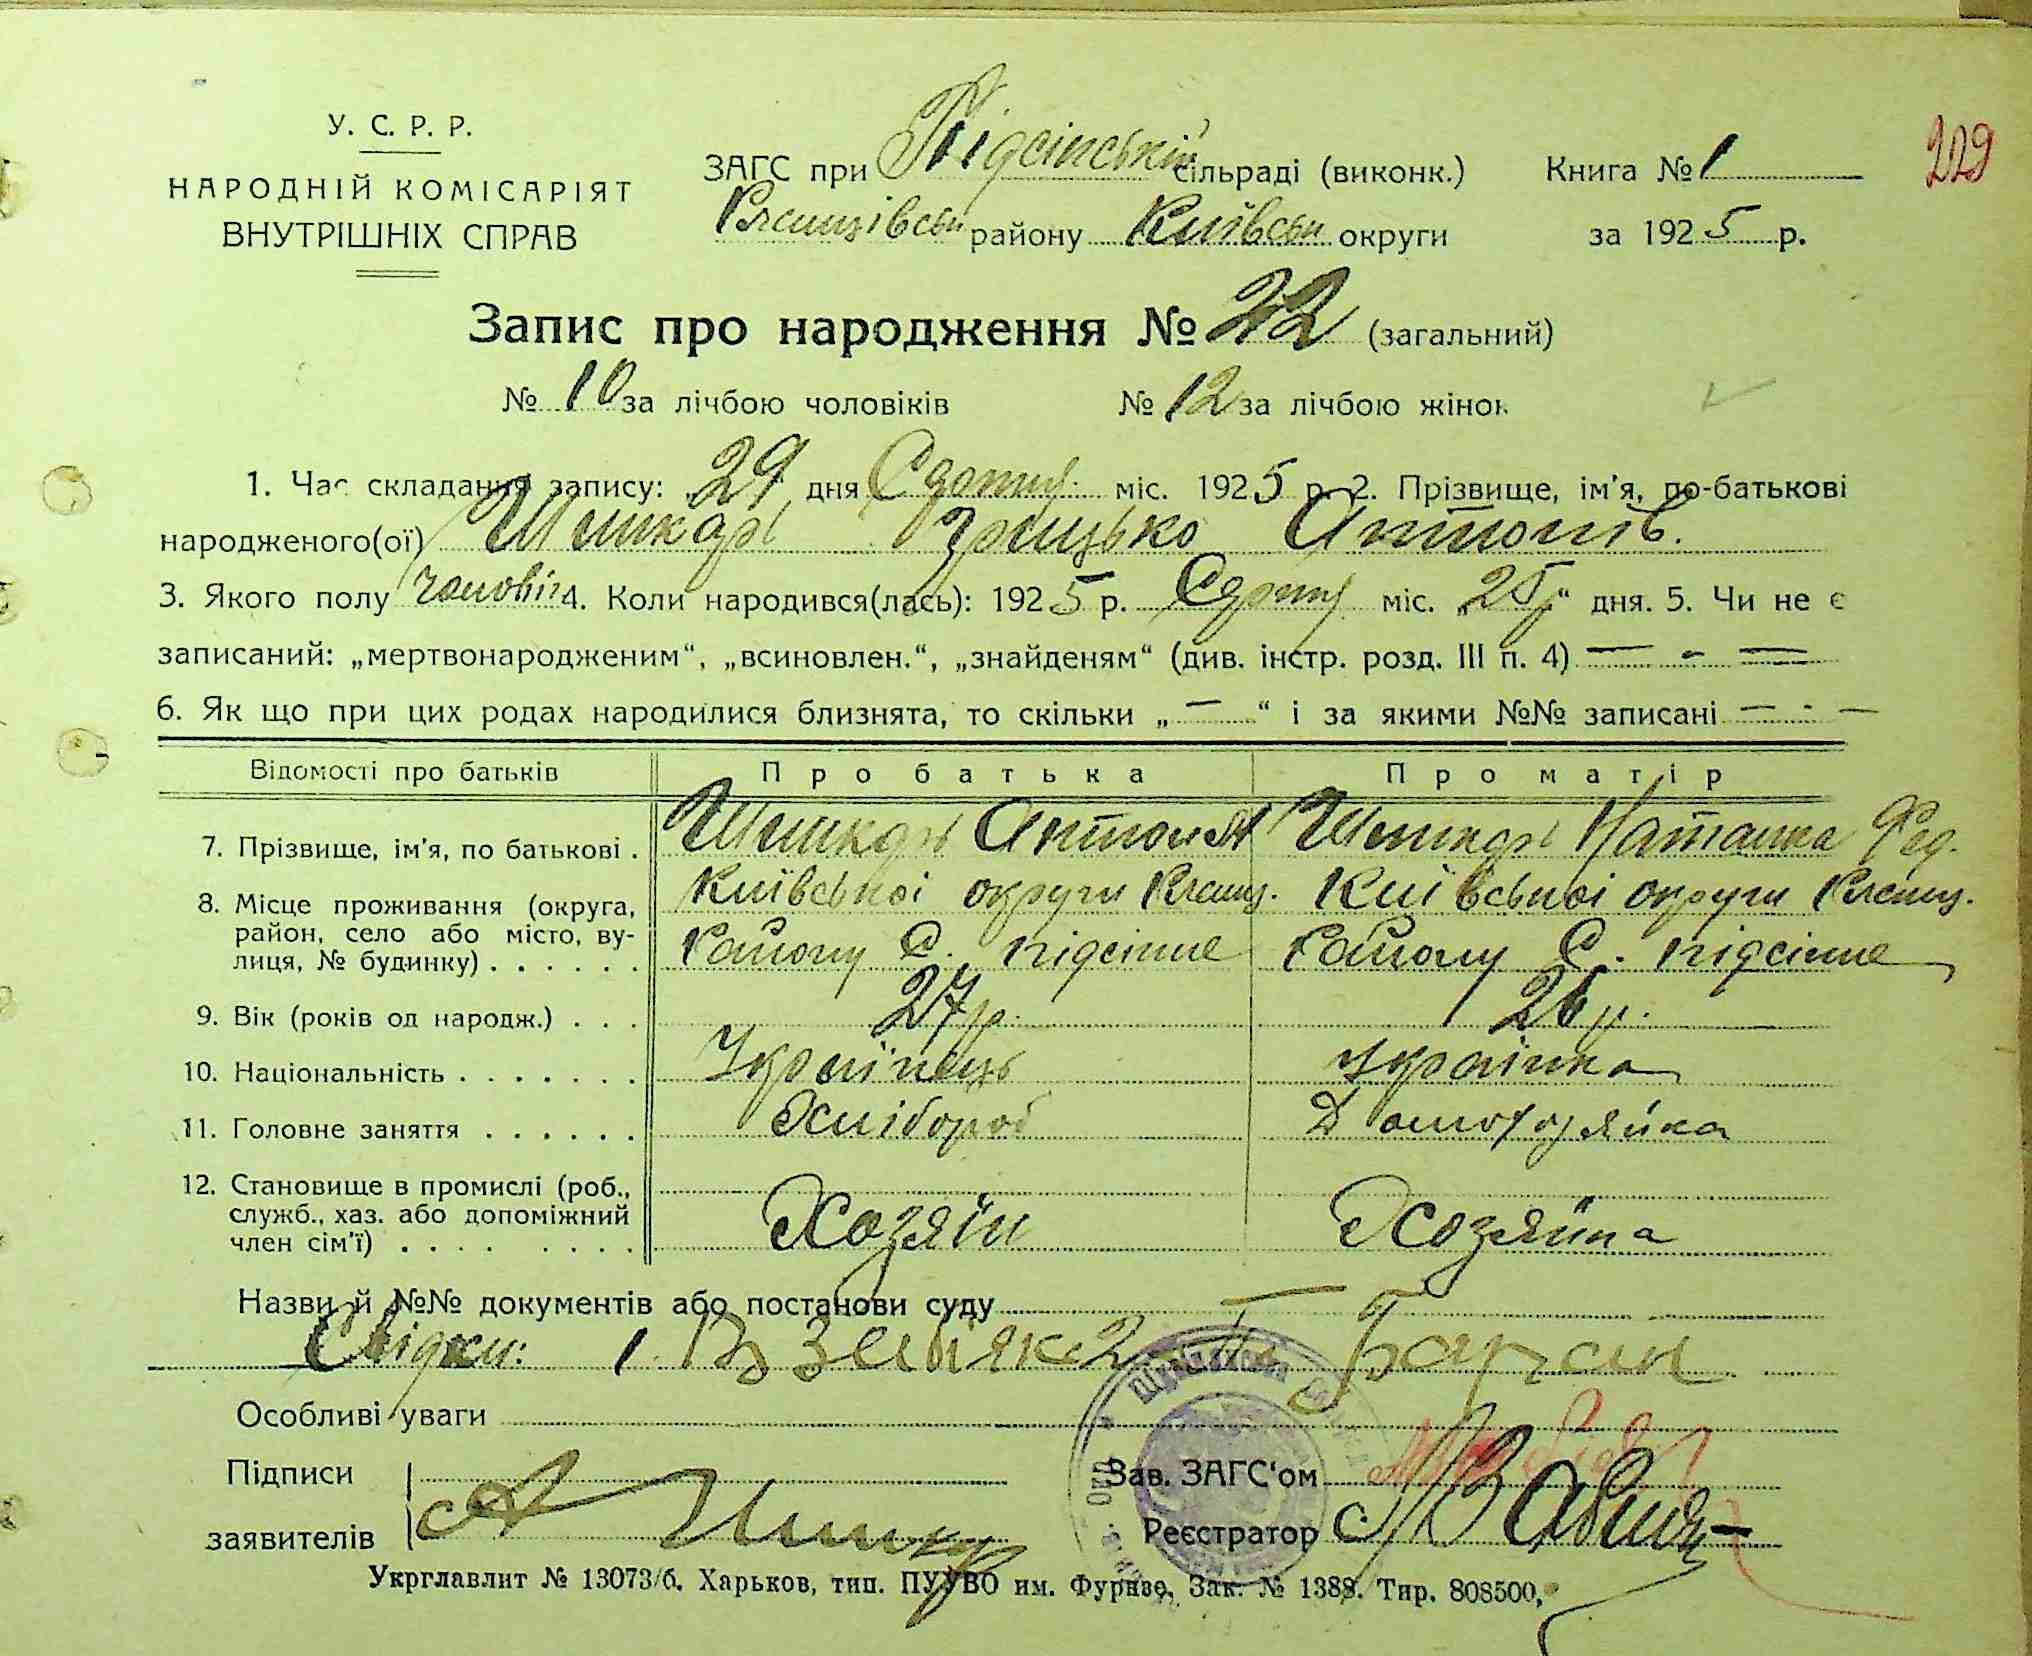 У. С. Р. Р.
НАРОДНІЙ КОМІСАРІЯТ
ВНУТРІШНІХ СПРАВ
ЗАГС при Підсінській сільраді (виконк.)
району Київськ округи
Книга № 1
за 1925 р.
229
Запис про народження № 22 (загальний)
№ 10 за лічбою чоловіків № 12 за лічбою жінок
1. Час складання запису: 29 дня Серпня міс. 1925 р. 2. Прізвище, ім'я, по-батькові
народженого(ої) Шишкарь Грицько Антонів.
3. Якого полу чоловіч 4. Коли народився(лась): 1925 р. Серпня міс. „25“ дня. 5. Чи не є
записаний: „мертвонародженим“, „всиновлен.“, „знайденям“ (див. інстр. розд. III п. 4) — - —
6. Як що при цих родах народилися близнята, то скільки „ — “ і за якими №№ записані — - —
Відомості про батьків Про батька Про матір
7. Прізвище, ім'я, по батькові . Шишкарь Антон Шишкарь Наталка Фед.
8. Місце проживання (округа, Київської округи Київської округи
район, село або місто, ву- Району С. Підсінне Району С. Підсінне
лиця, № будинку) . . . . . .
9. Вік (років од народж.) . . . 27 р. 26 р.
10. Національність . . . . . . . Українець Українка
11. Головне заняття . . . . . . Хлібороб Домохозяйка
12. Становище в промислі (роб.,
служб., хаз. або допоміжний Хозяїн Хозяйка
член сім'ї) . . . . . . . .
Назви й №№ документів або постанови суду —
Свідки: 1. 2
Особливі уваги
Підписи
заявителів А Шишкар
Зав. ЗАГС'ом
Реєстратор
Укрглавлит № 13073/б. Харьков, тип. ПУУВО им. Фрунзе, Зак. № 1388. Тир. 808500,